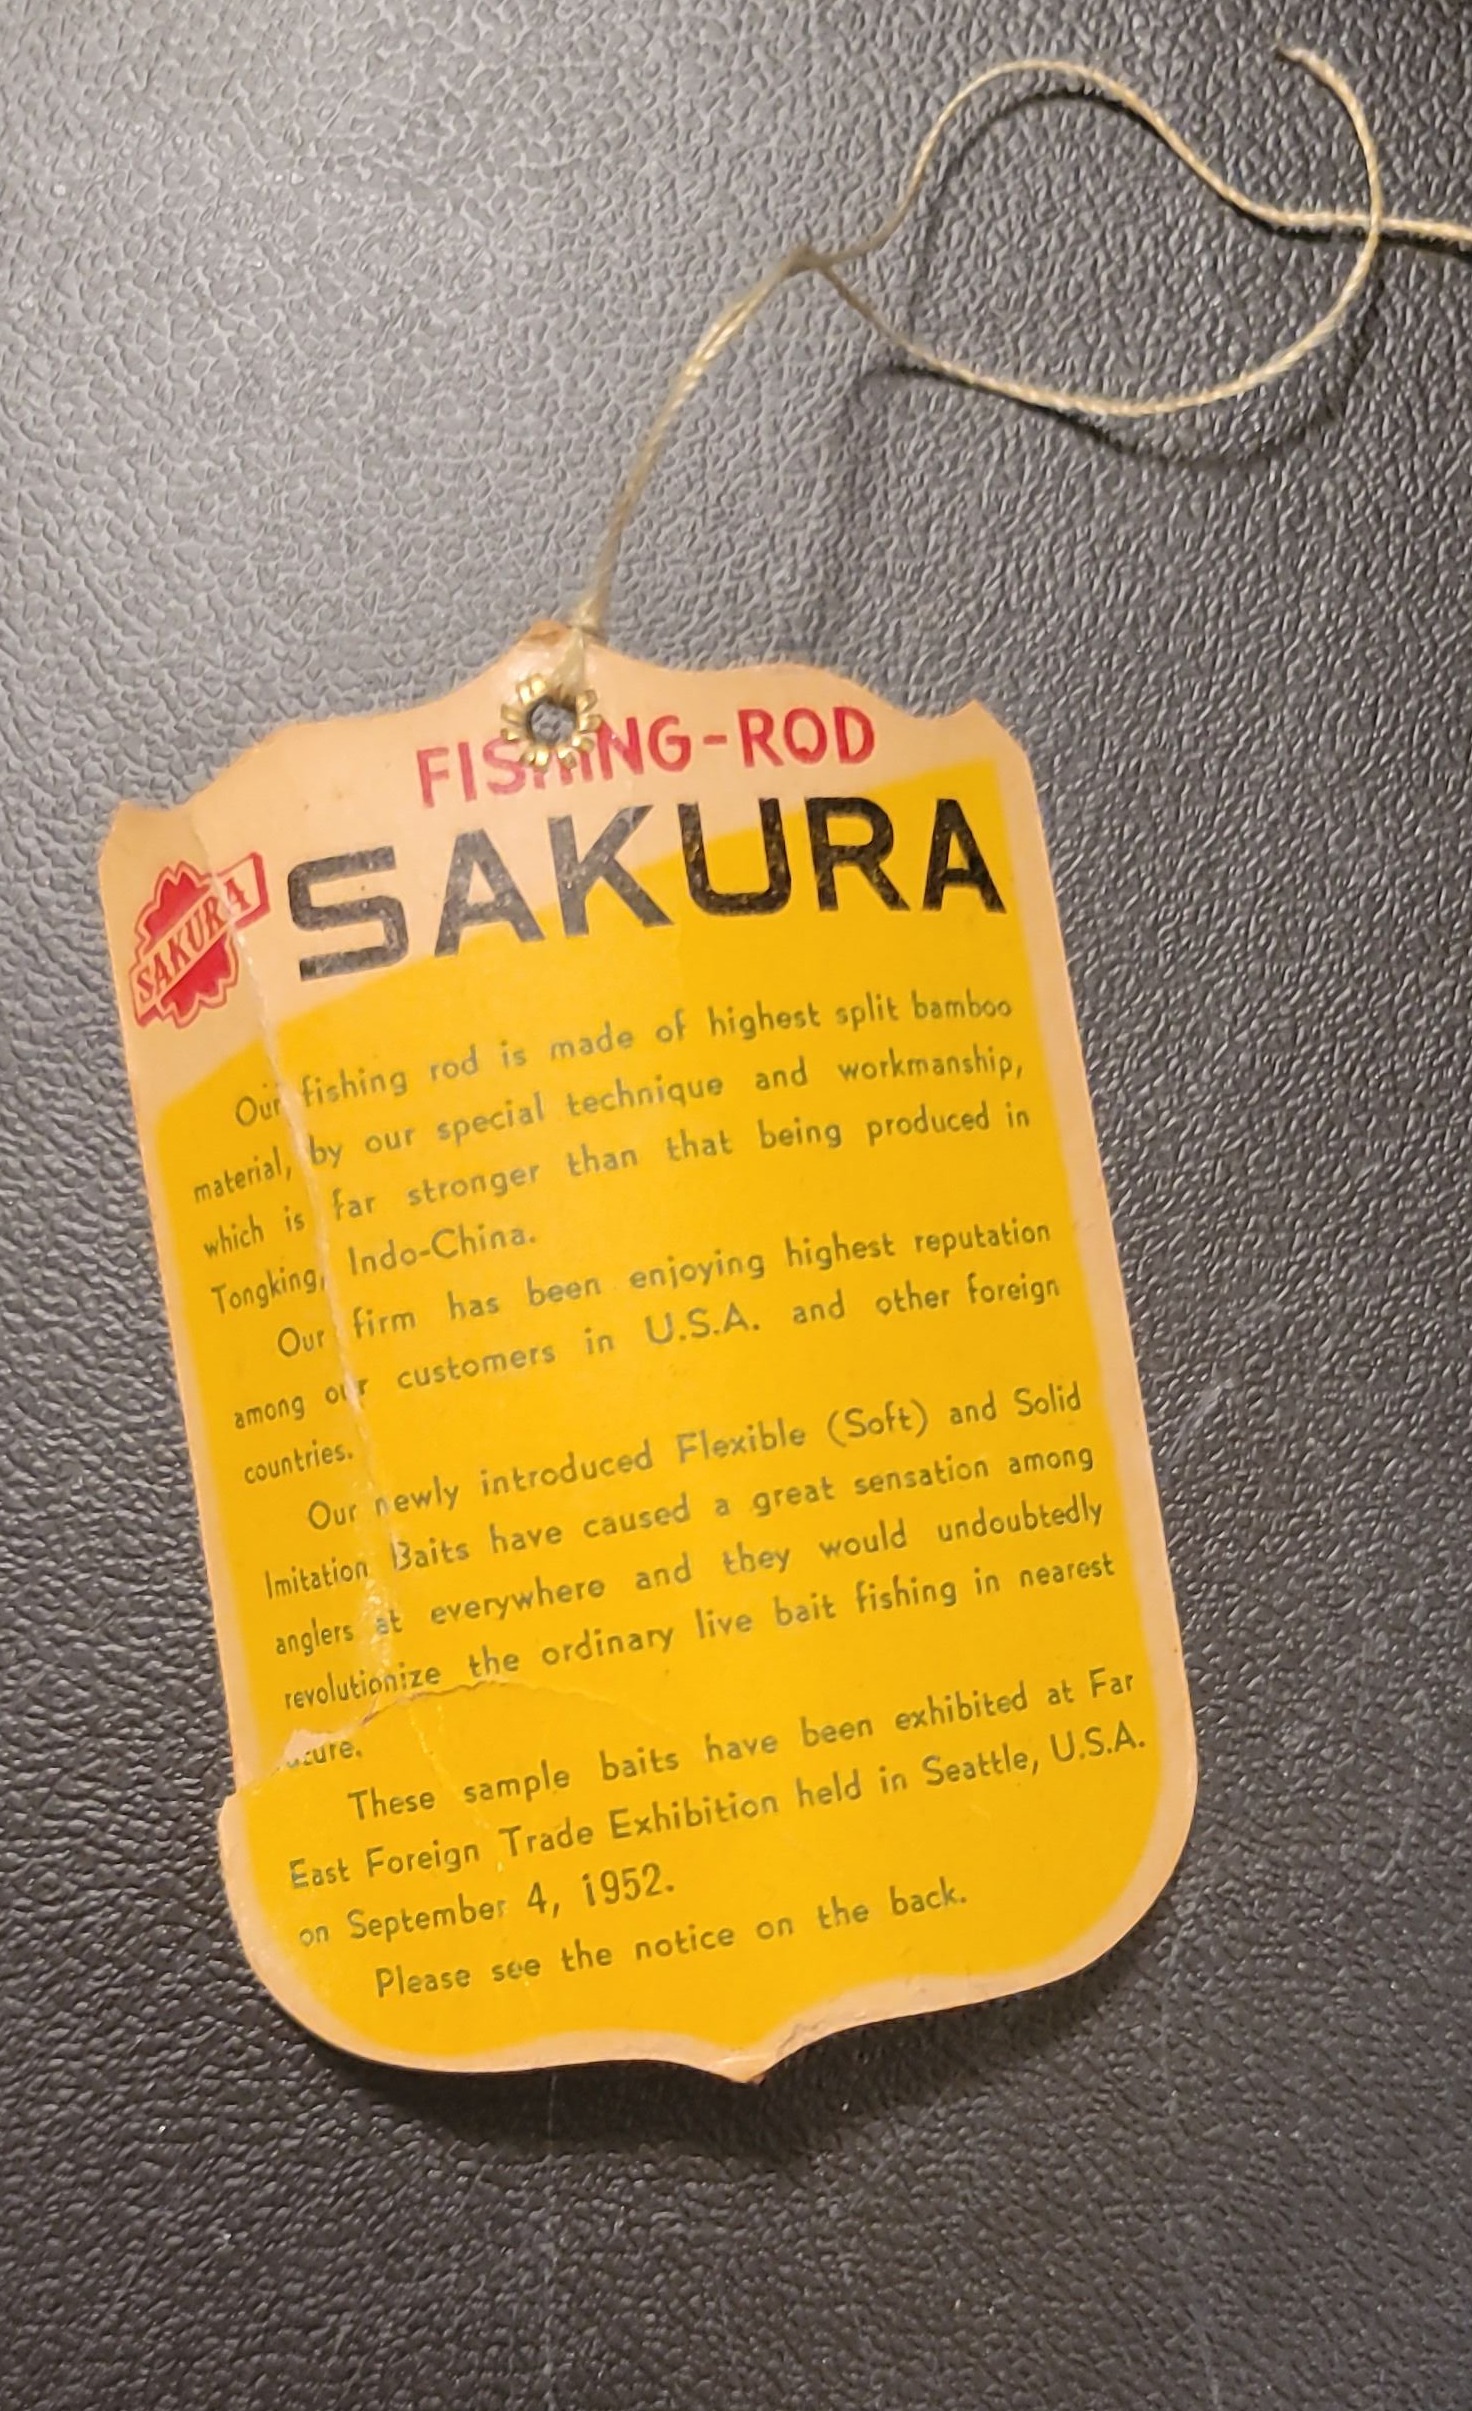 FISHING-ROD
SAKURA
SAKURA
Our fishing rod is made of highest split bamboo
material, by our special technique and workmanship,
which is far stronger than that being produced in
Tongking, Indo-China.
Our firm has been enjoying highest reputation
among our customers in U.S.A. and other foreign
countries.
Our newly introduced Flexible (Soft) and Solid
Imitation Baits have caused a great sensation among
anglers at everywhere and they would undoubtedly
revolutionize the ordinary live bait fishing in nearest
These sample baits have been exhibited at Far
East Foreign Trade Exhibition held in Seattle, U.S.A.
on September 4, 1952.
Please see the notice on the back.